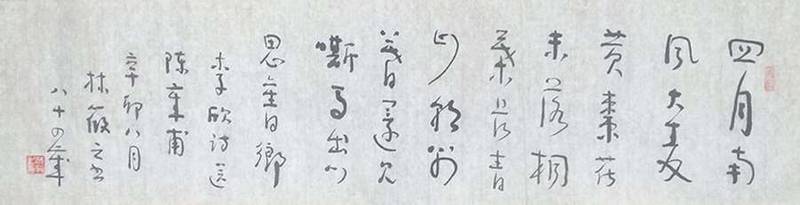 四月南
风大麦
黄棗花
未落桐
葉长青
山朝别
暮還见
嘶马出门
思舊鄉
李颀诗送
陈章甫
辛卯八月
林筱之书
八十四歲